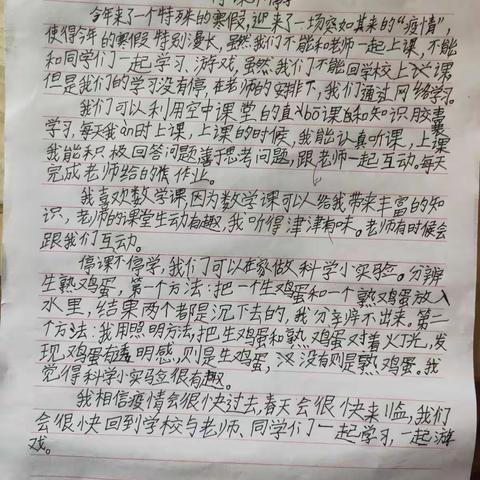 停课不停学
今年来了一个特殊的寒假,迎来了一场突如其来的“疫情”,
使得今年的寒假特别漫长,虽然我们不能和老师一起上课,不能
和同学们一起学习、游戏,虽然我们不能回学校上课
但是我们的学习没有停,在老师的安排下,我们通过网络学习。
我们可以利用空中课堂的直bō课和知识胶囊
学习,每天我an时上课,上课的时候,我能认真听课,上课
我能积极回答问题善于思考问题,跟老师一起互动。每天
完成老师给的作业。
我喜欢数学课,因为数学课可以给我带来丰富的知
识,老师的课堂生动有趣,我听得津津有味。老师有时候会
跟我们互动。
停课不停学,我们可以在家做科学小实验。分辨
生熟鸡蛋,第一个方法:把一个生鸡蛋和一个熟鸡蛋放入
水里,结果两个都是沉下去的,我分辛辨不出来。第二
个方法:我用照明方法,把生鸡蛋和熟鸡蛋对着火灯光,发
现鸡蛋有透明感,则是生鸡蛋,没有则是熟鸡蛋。我
觉得科学小实验很有趣。
我相信疫情会很快过去,春天会很快来临,我们
会很快回到学校与老师、同学们一起学习,一起游
戏。